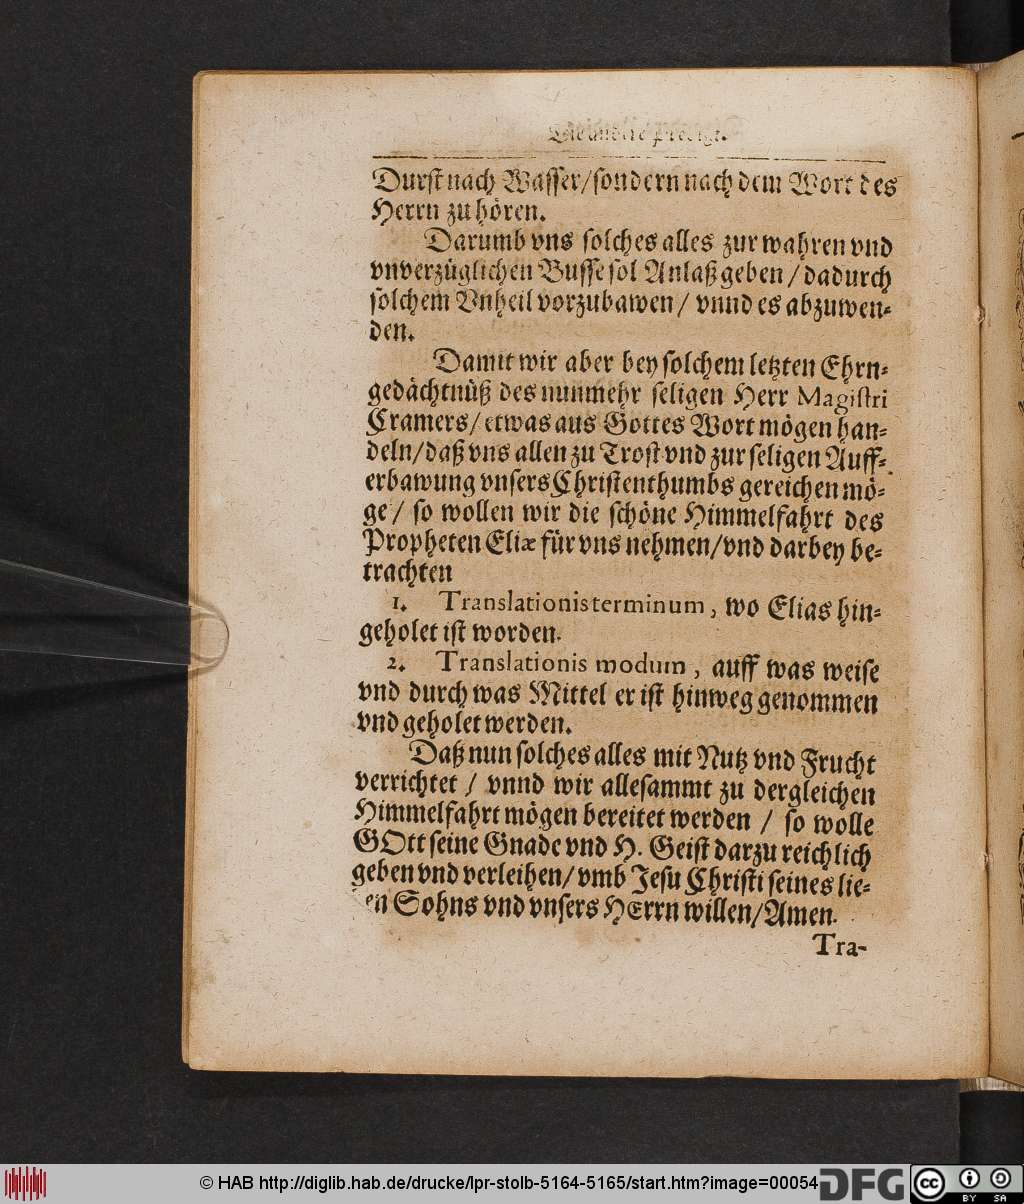 Die andere Predigt.
Durst nach Wasser/sondern nach dem Wort des
Herrn zu hören.
Darumb vns solches alles zur wahren vnd
vnverzüglichen Busse sol Anlaß geben / dadurch
solchem Vnheil vorzubawen / vnnd es abzuwen-
den.
Damit wir aber bey solchem letzten Ehrn-
gedächtnüß des nunmehr seligen Herr Magistri
Cramers/ etwas aus Gottes Wort mögen han-
deln/daß vns allen zu Trost vnd zur seligen Auff-
erbawung vnsers Christenthumbs gereichen mö-
ge / so wollen wir die schöne Himmelfahrt des
Propheten Eliæ für vns nehmen/vnd darbey be-
trachten
1. Translationis terminum, wo Elias hin-
geholet ist worden.
2. Translationis modum, auff was weise
vnd durch was Mittel er ist hinweg genommen
vnd geholet werden.
Daß nun solches alles mit Nutz vnd Frucht
verrichtet / vnnd wir allesammt zu dergleichen
Himmelfahrt mögen bereitet werden / so wolle
GOtt seine Gnade vnd H. Geist darzu reichlich
geben vnd verleihen/ vmb Jesu Christi seines lie-
en Sohns vnd vnsers HErrn willen/Amen.
Tra-
© HAB http://diglib.hab.de/drucke/lpr-stolb-5164-5165/start.htm?image=00054
DFG
cc
BY SA